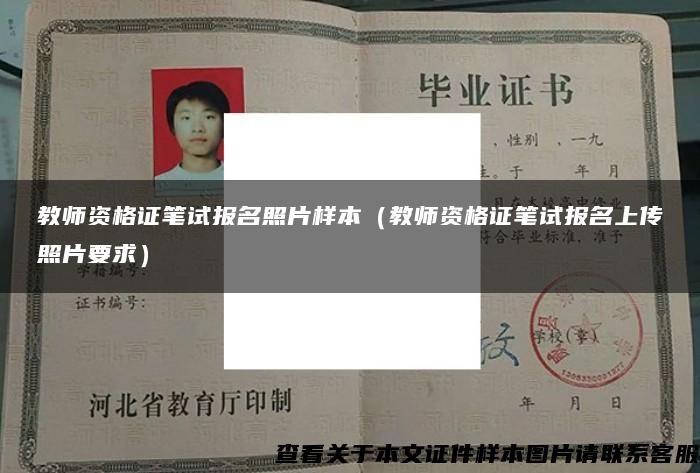 毕业证书
，性别　，一九
生。于　年　月
教师资格证笔试报名照片样本（教师资格证笔试报名上传
照片要求）
符合毕业标准，准予
学籍编号：
证书编号：
学校(章)
河北省教育厅印制
年　月　日
查看关于本文证件样本图片请联系客服